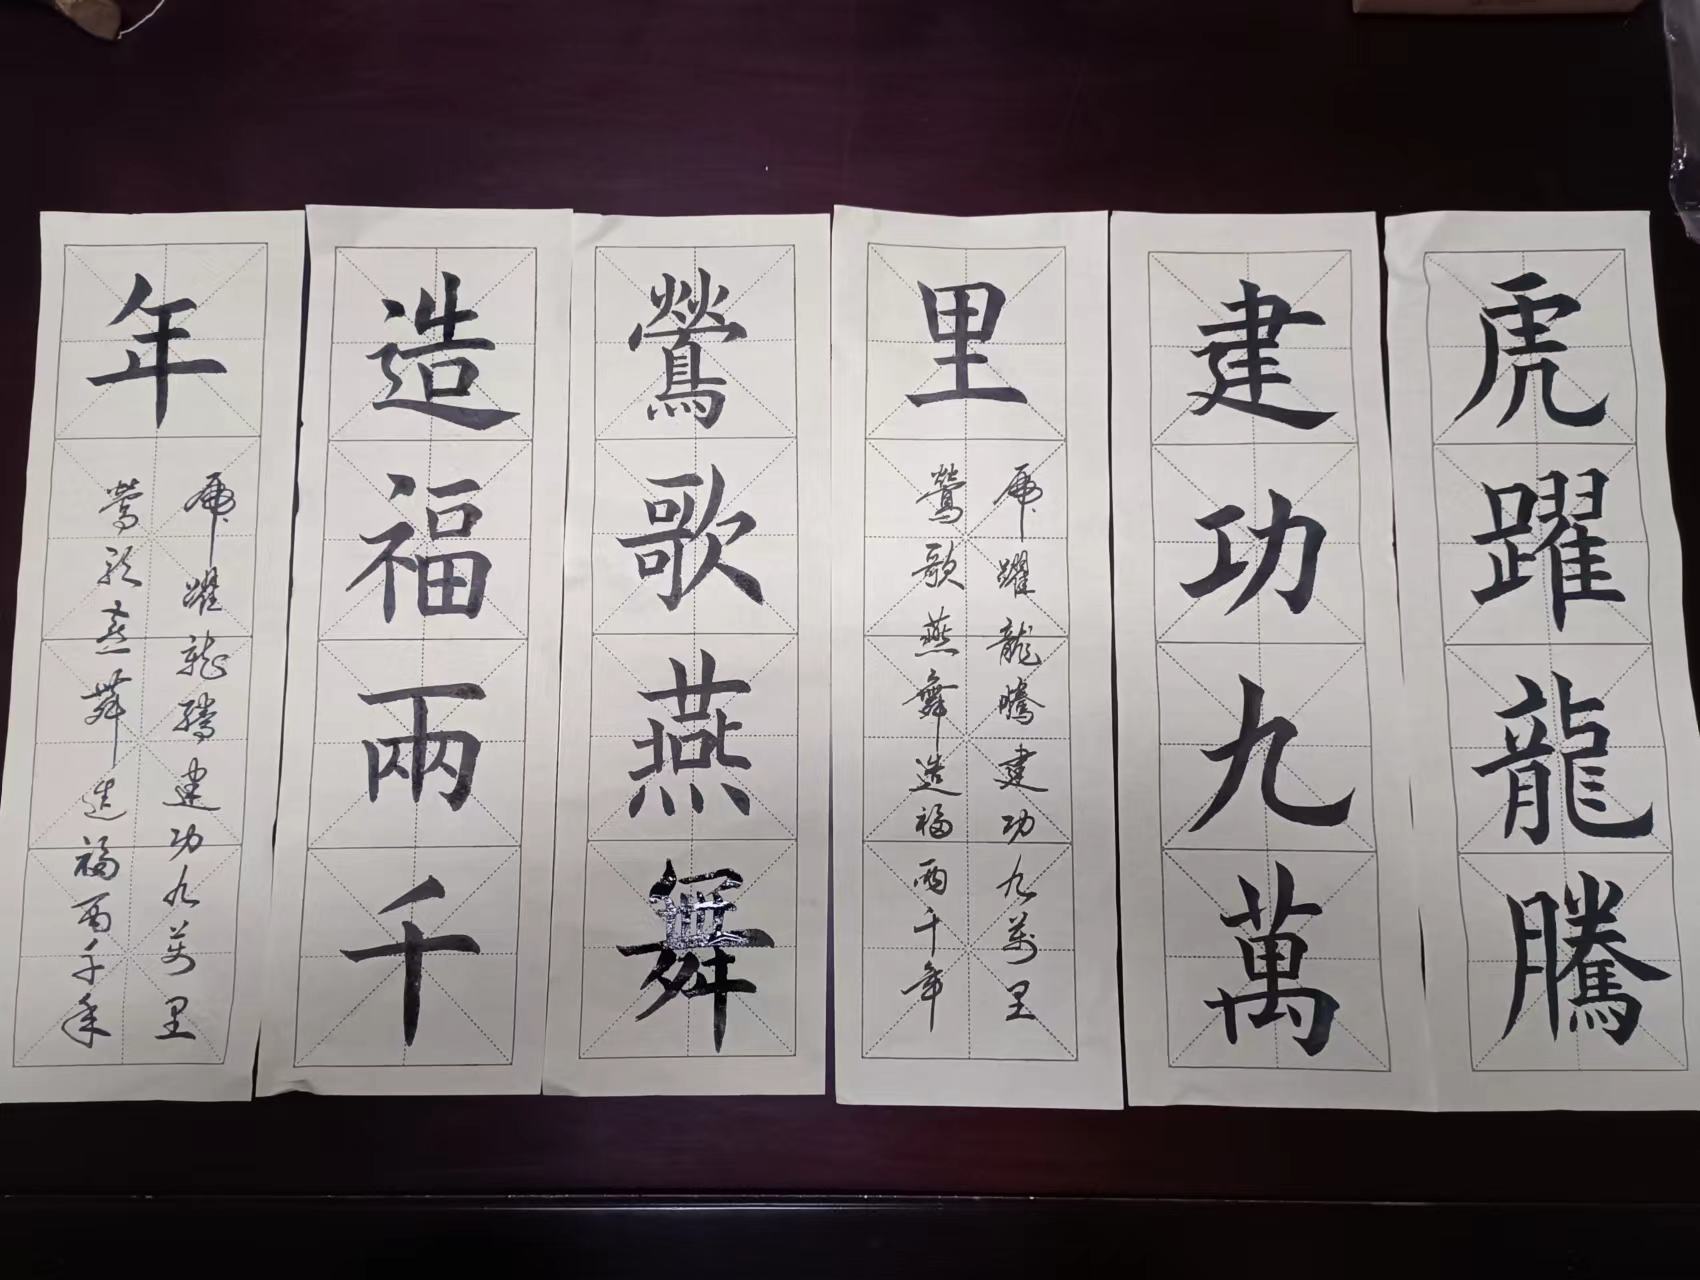 虎躍龍騰
建功九萬
里
虎躍龍騰建功九萬里
鶯歌燕舞造福兩千年
鶯歌燕舞
造福兩千
年
虎躍龍騰建功九萬里
鶯歌燕舞造福兩千年